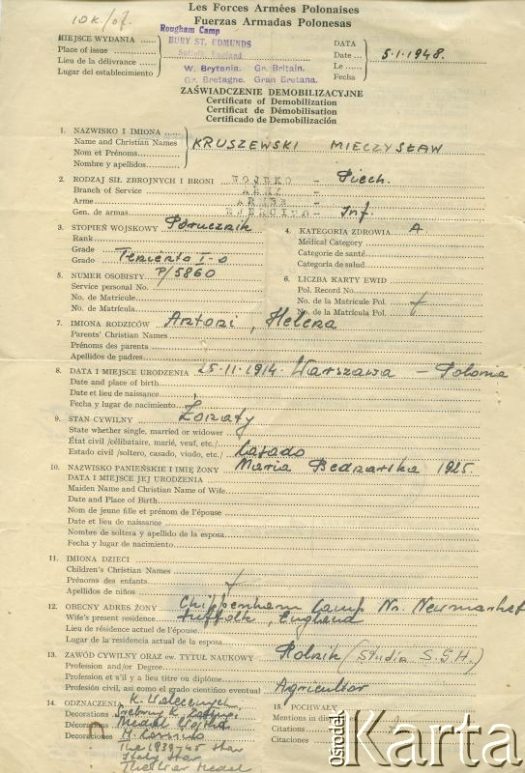 10K/of.
Les Forces Armées Polonaises
Fuerzas Armadas Polonesas
MIEJSCE WYDANIA
Place of issue
Lieu de la délivrance
Lugar del establecimiento
Rougham Camp
BURY ST. EDMUNDS
Suffolk, England
W. Brytania. Gr. Britain.
Gr. Bretagne. Gran Bretana.
DATA
Date ... 5.1.1948.
Le
Fecha
ZAŚWIADCZENIE DEMOBILIZACYJNE
Certificate of Demobilization
Certificat de Démobilisation
Certificado de Demobilización
1. NAZWISKO I IMIONA
Name and Christian Names
Nom et Prénoms
Nombre y apellidos
KRUSZEWSKI MIECZYSŁAW
2. RODZAJ SIŁ ZBROJNYCH I BRONI WOJSKO - Piech.
Branch of Service ARMY -
Arme ARMEE -
Gen. de armas EJERCITO - Inf.
3. STOPIEŃ WOJSKOWY Porucznik
Rank
Grade
Grado Teniente I-o
4. KATEGORIA ZDROWIA A
Medical Category
Categorie de santé
Categoria de salud
5. NUMER OSOBISTY P/5860
Service personal No.
No. de Matricule
No. de Matricula
6. LICZBA KARTY EWID
Pol. Record No.
No. de la Matricule Pol.
No. de la Matricula Pol.
7. IMIONA RODZICÓW Antoni, Helena
Parents' Christian Names
Prénoms des parents
Apellidos de padres
8. DATA I MIEJSCE URODZENIA 25.11.1914. Warszawa - Polonia
Date and place of birth
Date et lieu de naissance
Fecha y lugar de nacimiento
9. STAN CYWILNY Żonaty
State whether single, married or widower
État civil /célibataire, marié, veuf, etc./
Estado civil /soltero, casado, viudo, etc./ Casado
10. NAZWISKO PANIEŃSKIE I IMIĘ ŻONY Maria Bednarska 1925
DATA I MIEJSCE JEJ URODZENIA
Maiden Name and Christian Name of Wife
Date and Place of Birth
Nom de jeune fille et prénom de l'épouse
Date et lieu de naissance
Nombre de soltera y apellido de la esposa
Fecha y lugar de nacimiento
11. IMIONA DZIECI
Children's Christian Names
Prénoms des enfants
Apellidos de niños
12. OBECNY ADRES ŻONY Chippenham Camp Nr. Newmarket
Wife's present residence Suffolk, England
Lieu de résidence actuel de l'épouse
Lugar de la residencia actual de la esposa
13. ZAWÓD CYWILNY ORAZ ew. TYTUŁ NAUKOWY Rolnik (Studia S.G.H.)
Profession and/or Degree
Profession et s'il y a lieu titre ou diplôme
Profesión civil, asi como el grado cientifico eventual Agricultor
14. ODZNACZENIA K. Walecznych,
Decorations Srebrny K. Zasługi
Décorations Medal Wojska
Decoraciones M. Cassino
The 1939-45 Star
Italy Star
The War Medal
15. POCHWAŁY
Mentions in
Citations
Citaciones
Ośrodek Karta